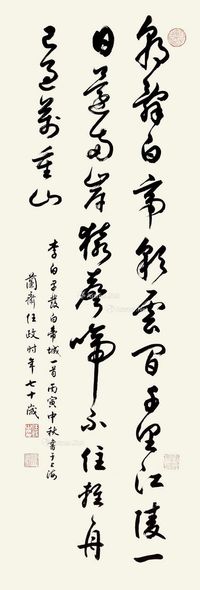 朝辞白帝彩云间千里江陵一
日还两岸猿声啼不住轻舟
已过万重山
李白早发白帝城一首丙寅中秋书于上海
兰斋任政时年七十岁